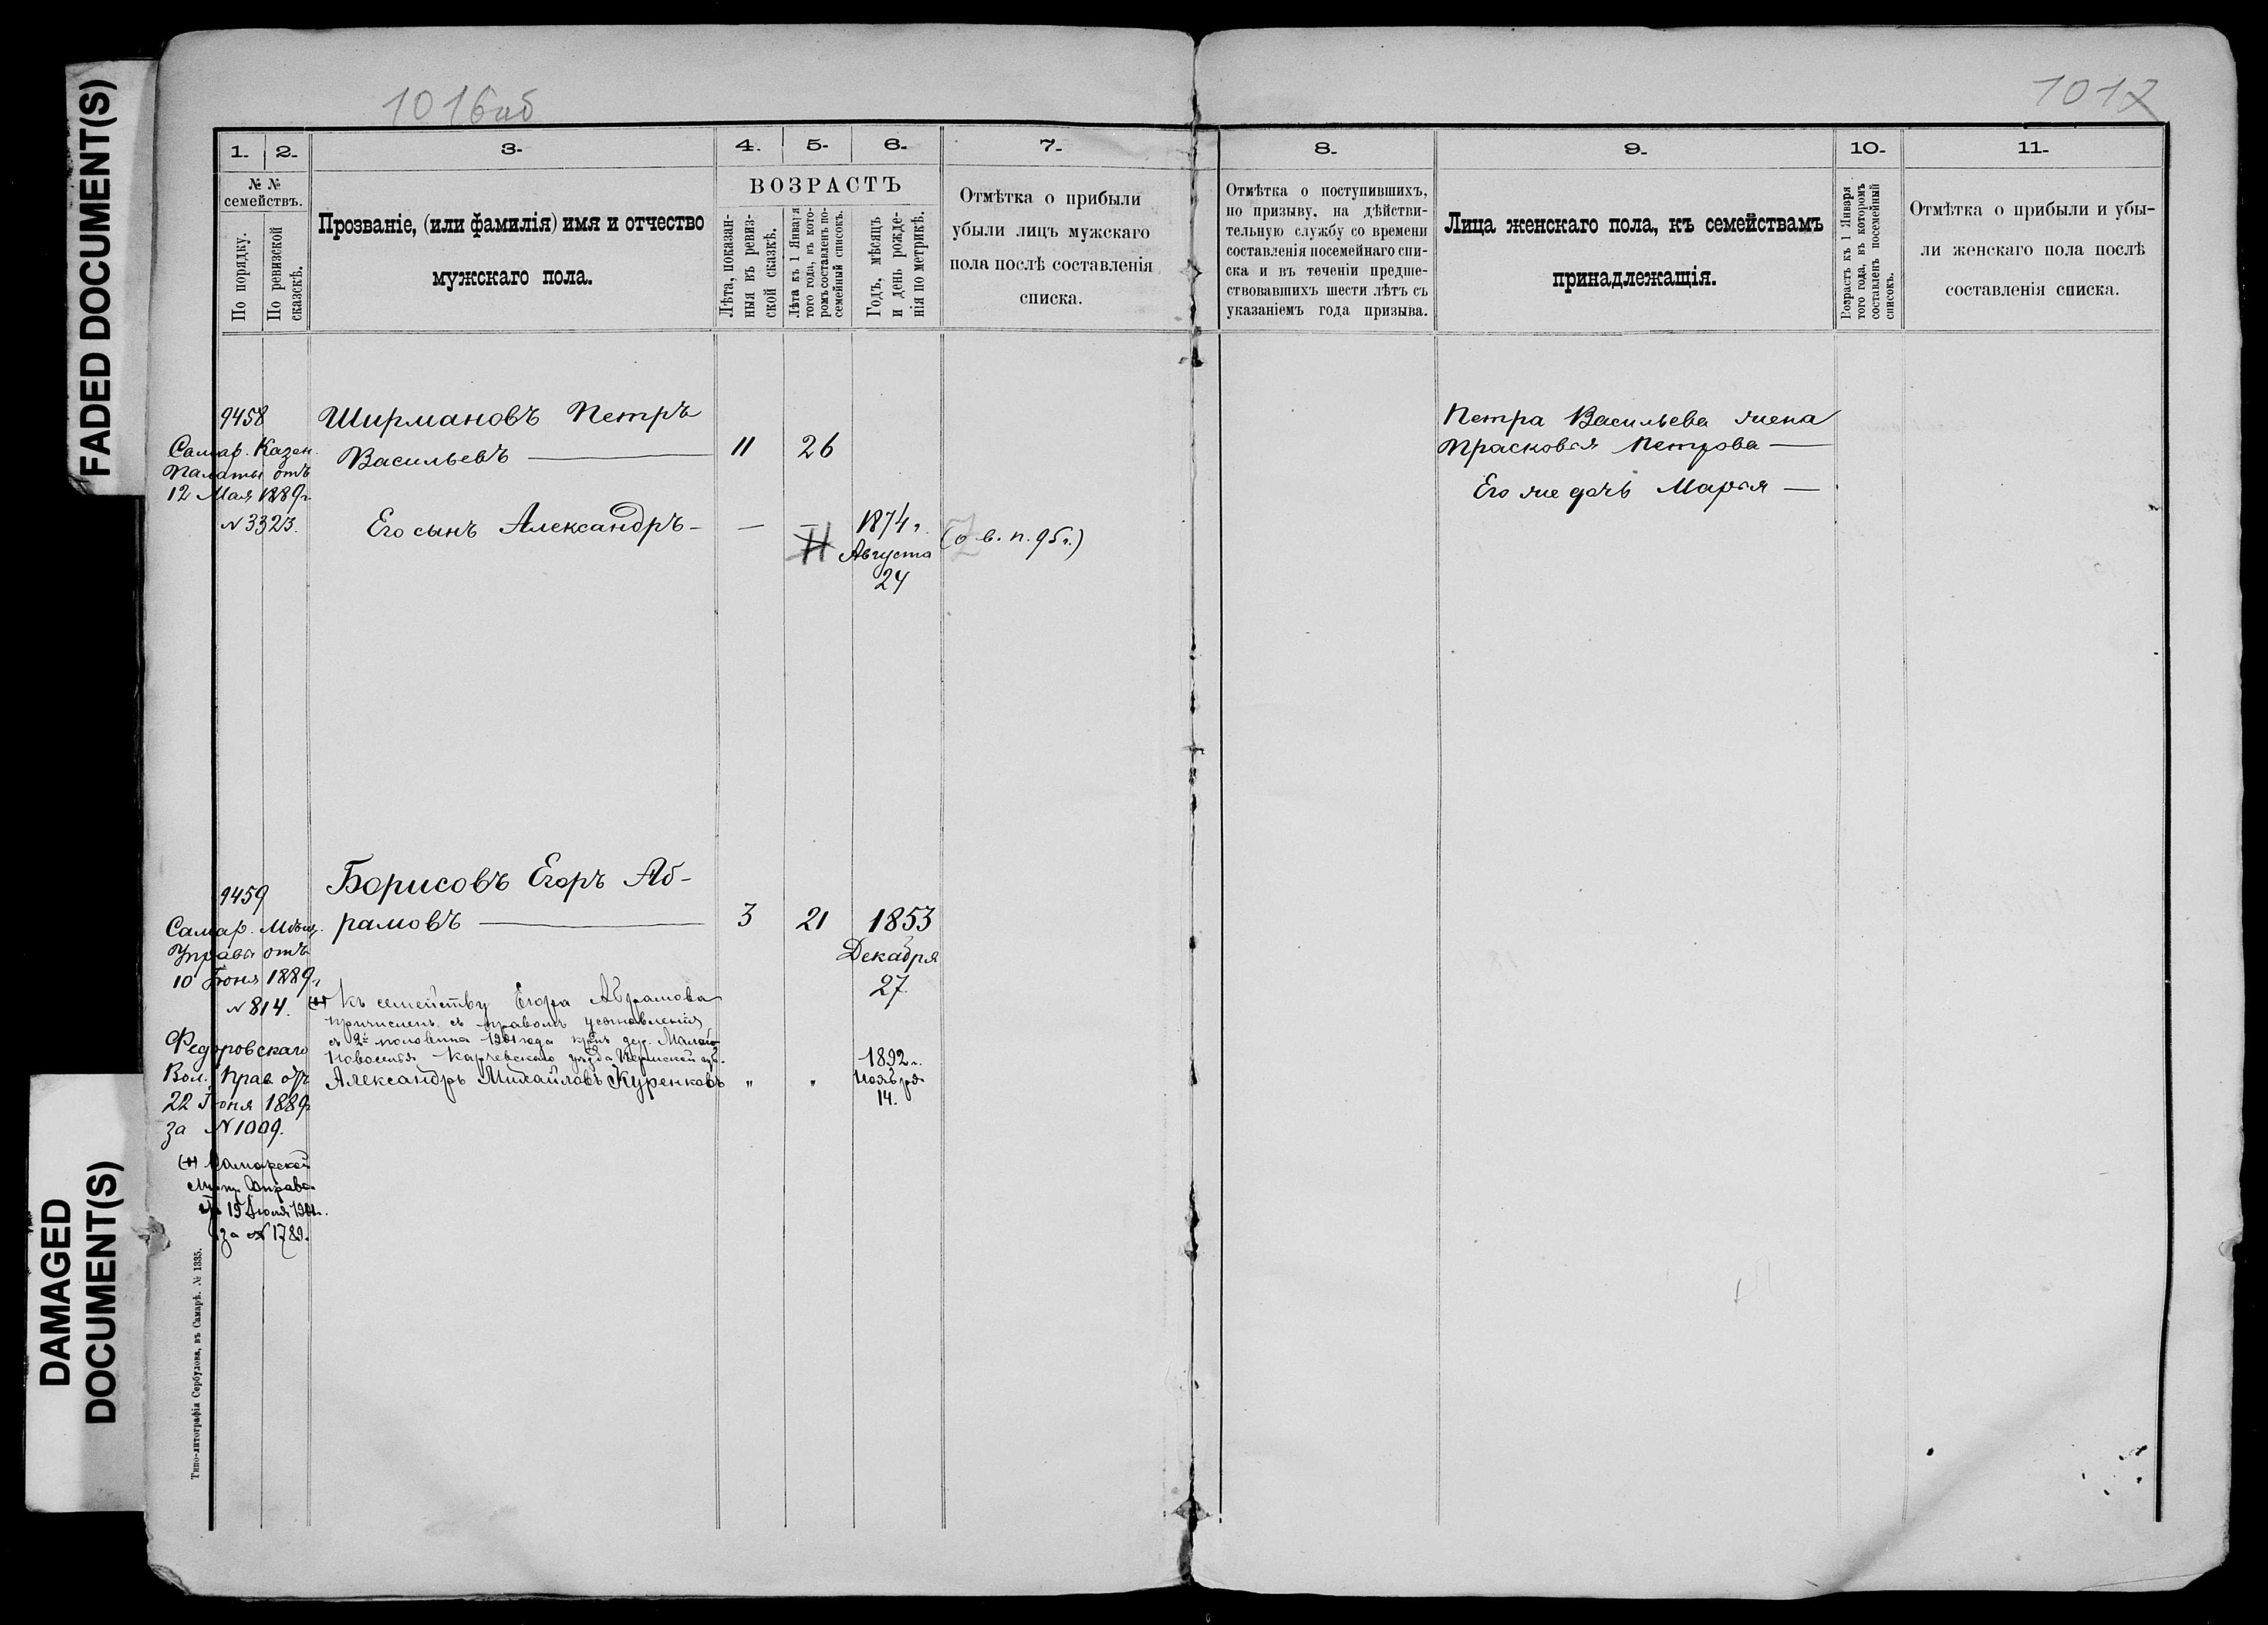 FADED DOCUMENT(S)
DAMAGED
DOCUMENT(S)
1016об
1017
1.
2.
3.
4.
5.
6.
7.
8.
9.
10.
11.
№ №
семействъ.
По порядку.
По ревизской
сказскѣ.
Прозваніе, (или фамилія) имя и отчество
мужскаго пола.
ВОЗРАСТЪ
Лѣта, показан-
ныя въ ревиз-
ской сказкѣ.
Лѣта къ 1 Января
того года, въ кото-
ромъ составленъ по-
семейный списокъ.
Годъ, мѣсяцъ
и день рожде-
нія по метрикѣ.
Отмѣтка о прибыли
убыли лицъ мужскаго
пола послѣ составленія
списка.
Отмѣтка о поступившихъ,
по призыву, на дѣйстви-
тельную службу со времени
составленія посемейнаго спи-
ска и въ теченіи предше-
ствовавшихъ шести лѣтъ съ
указаніемъ года призыва.
Лица женскаго пола, къ семействамъ
принадлежащія.
Возрастъ къ 1 Января
того года, въ которомъ
составленъ посемейный
списокъ.
Отмѣтка о прибыли и убы-
ли женскаго пола послѣ
составленія списка.
9458
Самар. Казен.
Палаты отъ
12 Мая 1889г.
№ 3323.
Ширмановъ Петръ
Васильевъ — 11 26
Его сынъ Александръ — — — 1874г.
Августа
24
(о в. п. 95г.)
Петра Васильева жена
Прасковья Петрова —
Его же дочь Марья —
9459
Самар. Мѣщ.
Управы отъ
10 Іюня 1889г.
№ 814.
Федоровскаго
Вол. Прав. отъ
22 Іюня 1889г
за № 1009.
Борисовъ Егоръ Аб-
рамовъ — 3 21 1853
Декабря
27
Къ семейству Егора Абрамова
причисленъ съ правомъ усыновленія
съ 2й половины 1901 года кр. дер. Малой
Александръ Михайловъ Куренковъ " " 1892г.
Ноября
14.
Самарской
Мѣщ. Управы
15 Іюля 1901г.
за № 1789.
Типо-литографія Сербулова, въ Самарѣ. № 1335.